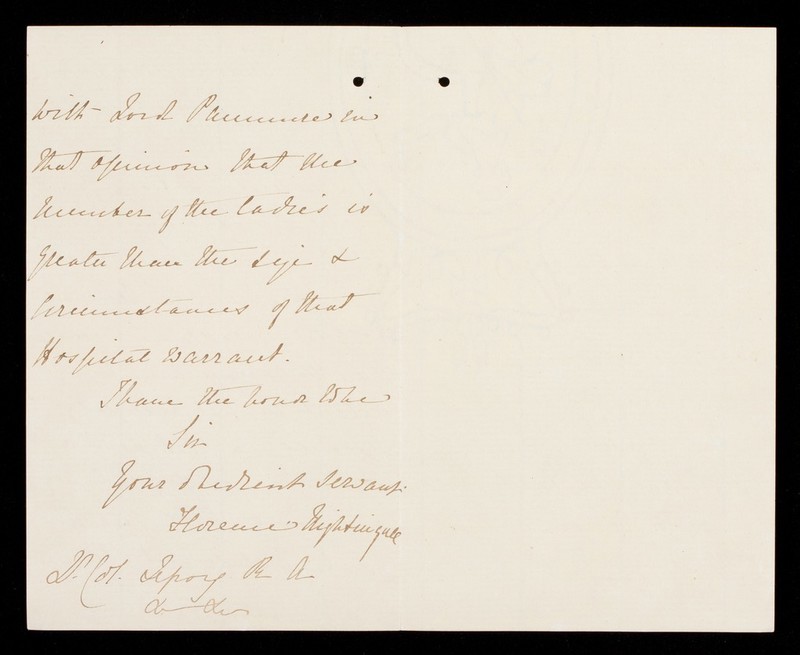 with Lord Panmure in
that opinion that the
number of the ladies is
greater than the size &
circumstances of that
Hospital warrant.
I have the honor to be
Sir
Your obedient servant
Florence Nightingale
Lt. Col. Lefroy R A
&c &c